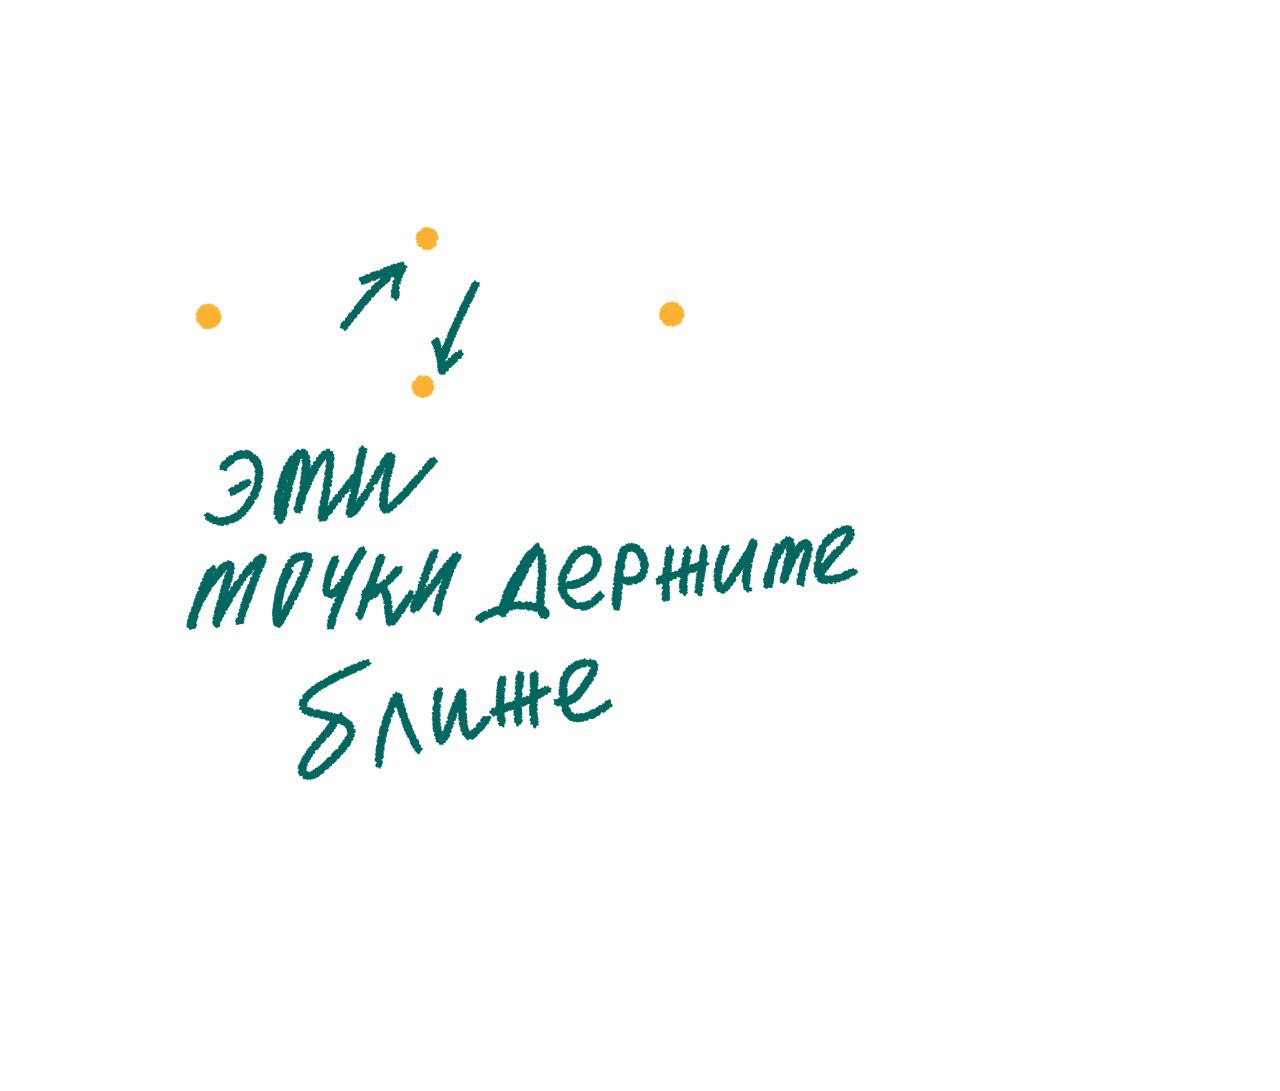 эти
точки держите
ближе